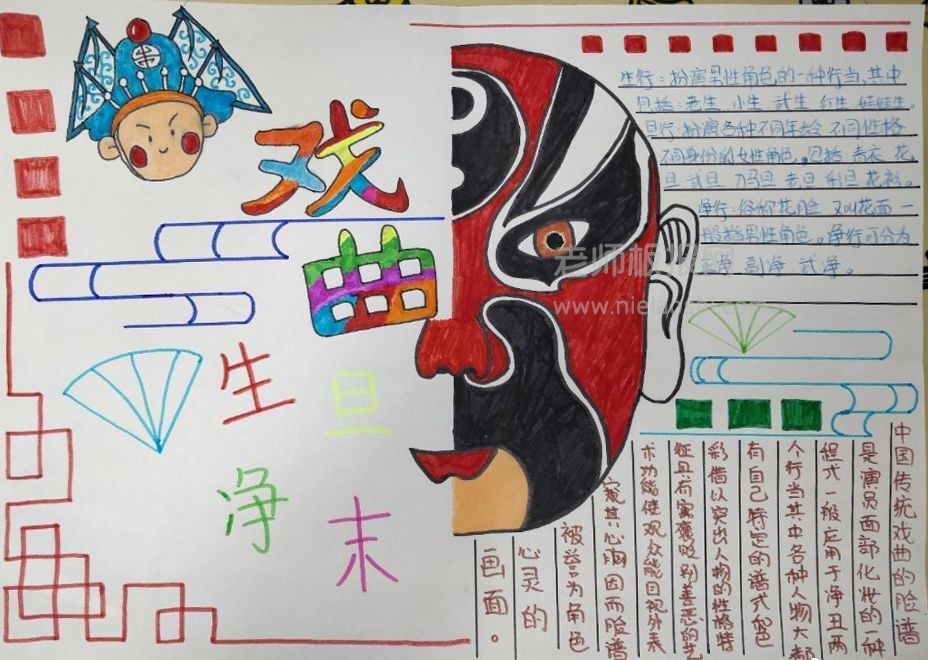 戏
曲
生 旦
净 末
生行：扮演男性角色的一种行当，其中
包括：老生 小生 武生 红生 娃娃生。
旦行：扮演各种不同年龄 不同性格
不同身份的女性角色。包括 青衣 花
旦 武旦 刀马旦 老旦 彩旦 花衫。
净行：俗称花脸 又叫花面 一
般指男性角色。净行可分为
正净 副净 武净。
中国传统戏曲的脸谱
是演员面部化妆的一种
程式一般应用于净丑两
个行当其中各种人物大都
有自己特定的谱式和色
彩借以突出人物的性格特
征具有寓褒贬别善恶的艺
术功能使观众能目视外表
窥其心胸因而脸谱
被誉为角色
心灵的
画面。
老师板报